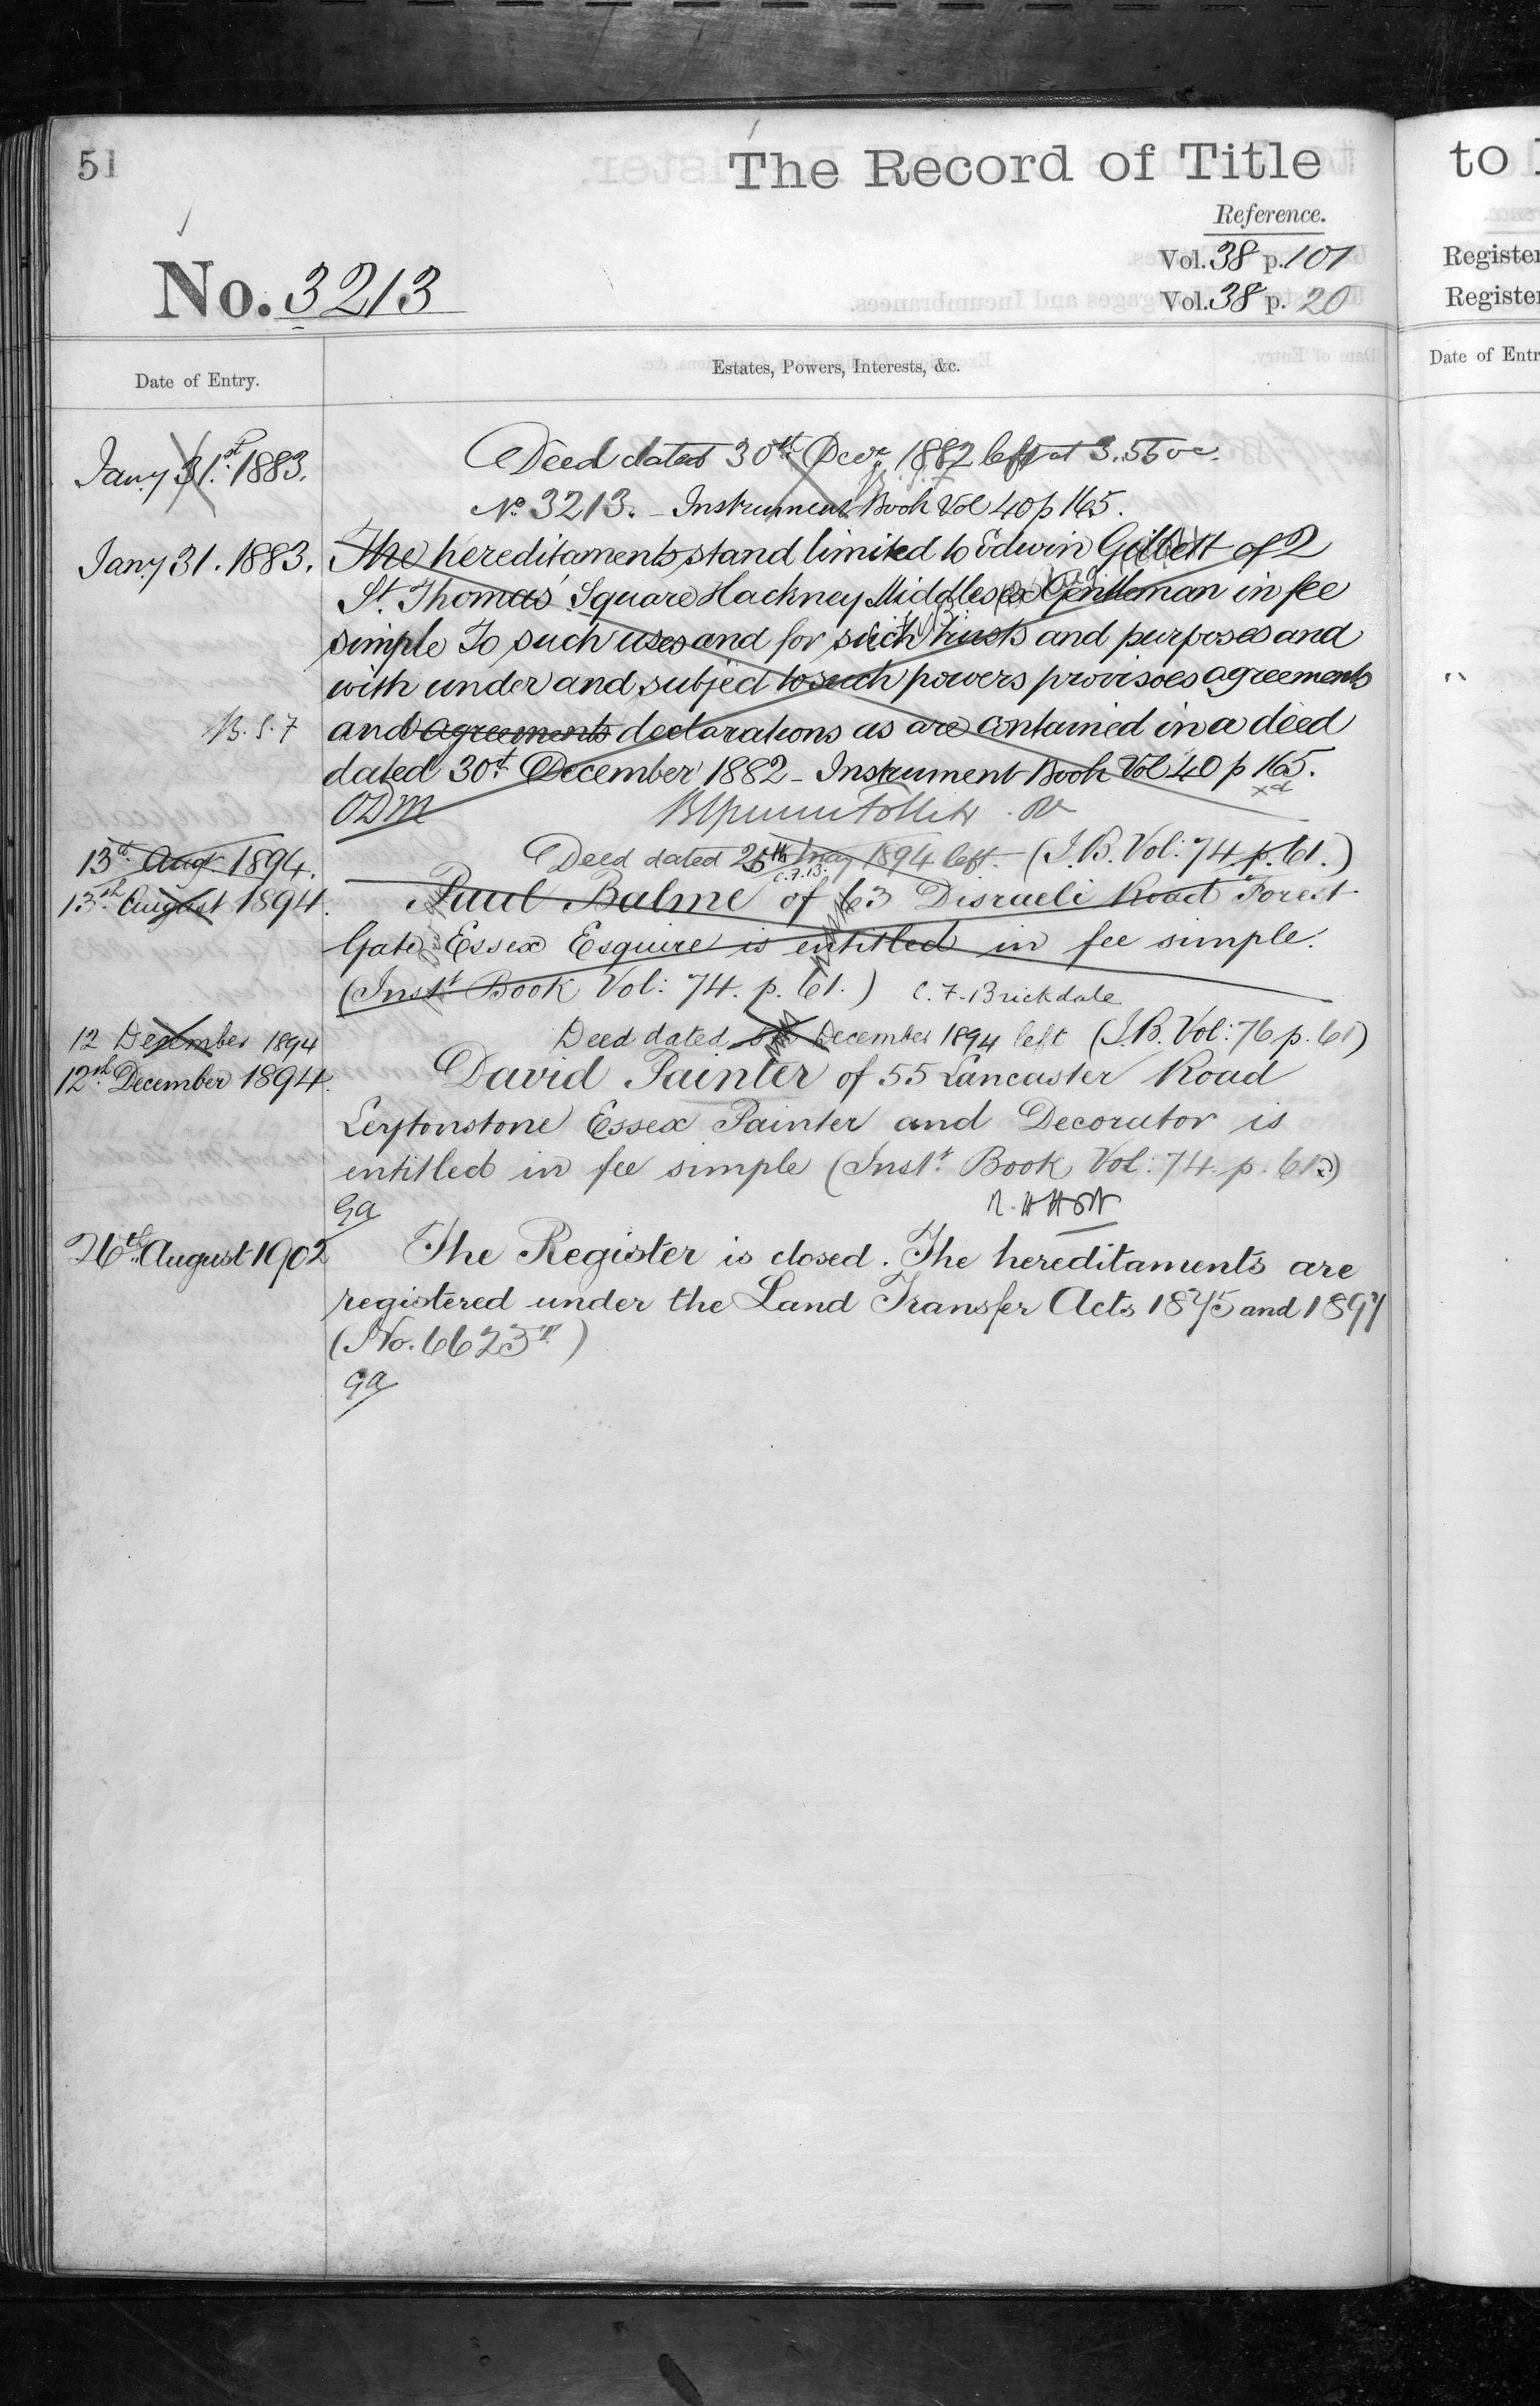 51
The Record of Title
to
Reference.
Vol. 38 p. 101
Vol. 38 p. 20
No. 3213
Date of Entry.
Estates, Powers, Interests, &c.
Jany 31st. 1883.
Deed dated 30th Decr. 1882 left at 3.55
No 3213. - Instrument Book Vol 40 p 165.
Jany 31. 1883.
The hereditaments stand limited to Edwin Gilbert of 2
St. Thomas' Square Hackney Middlesex Gentleman in fee
simple To such uses and for such trusts and purposes and
with under and subject to such powers provisoes agreements
and agreements declarations as are contained in a deed
dated 30th December 1882 - Instrument Book Vol 40 p 165.
ODM
13th Augt. 1894.
Deed dated 25th May 1894 left. - (I.B. Vol: 74 p. 61.)
C.F.B.
13th August 1894.
Paul Balme of 63 Disraeli Road Forest
Gate Essex Esquire is entitled in fee simple.
(Inst. Book Vol: 74. p. 61.) C. F. Brickdale
12 December 1894
Deed dated December 1894 left (I.B. Vol: 76 p. 61)
12th December 1894.
David Painter of 55 Lancaster Road
Leytonstone Essex Painter and Decorator is
entitled in fee simple (Inst. Book Vol: 74. p. 61.)
GA
26th. August 1902
The Register is closed. The hereditaments are
registered under the Land Transfer Acts 1875 and 1897
(No. 6623)
GA
Register
Register
Date of Entr